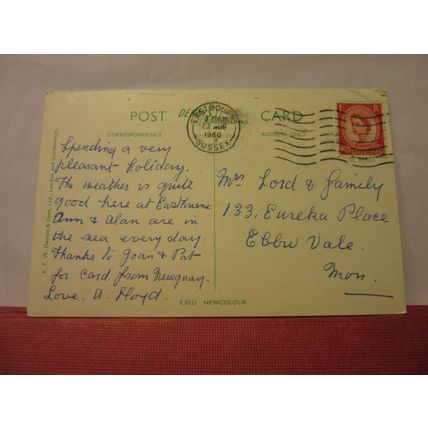 POST CARD
CORRESPONDENCE
ADDRESS ONLY
EASTBOURNE
1960
SUSSEX
Spending a very
pleasant holiday.
The weather is quite
good here at Eastbourne
Ann & Alan are in
the sea every day.
Thanks to Joan & Pat
for card from Newquay.
Love, A. Lloyd.
Mrs Lord & Family
133, Eureka Place
Ebbw Vale.
Mon.
E.D121 NEWCOLOUR
E. T. W. Dennis & Sons, Ltd., London and Scarborough.